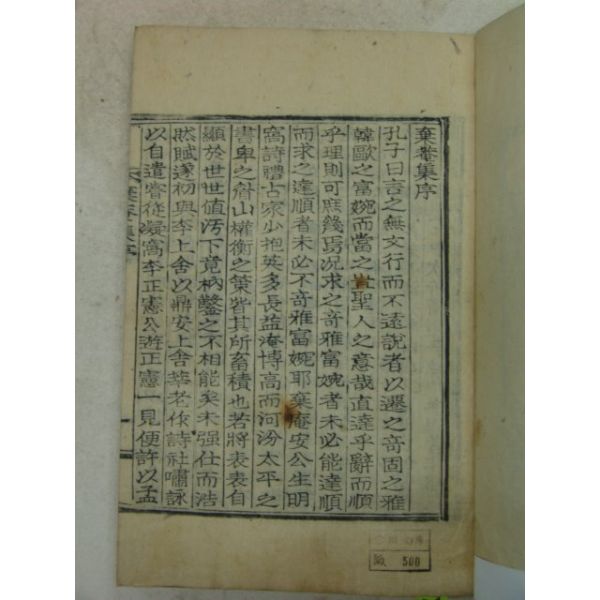 棄菴集序
孔子曰言之無文行而不遠說者以遷之奇固之雅
韓歐之富婉而當之豈聖人之意哉直達乎辭而順
乎理則可庶幾焉況求之奇雅富婉者未必能達順
而求之達順者未必不奇雅富婉耶棄庵安公生明
窩詩禮古家少抱英多長益淹博高而河汾太平之
書卑之眉山權衡之策皆其所畜積也若將表表自
顯於世世值汚下竟枘鑿之不相能矣未强仕而浩
然賦遂初與李上舍以鼎安上舍華老作詩社嘯詠
以自遣嘗從凝窩李正憲公遊正憲一見便許以孟
棄菴集序
500